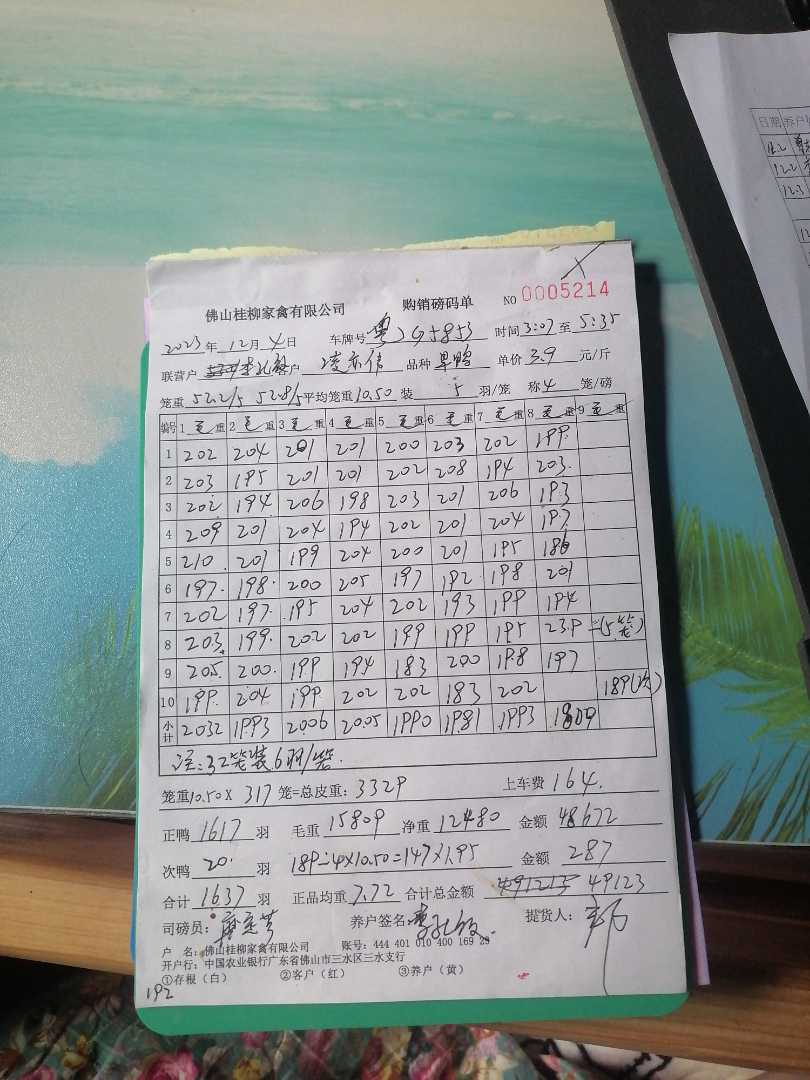 佛山桂柳家禽有限公司 购销磅码单 NO 0005214
2023年12月4日 车牌号 粤 G5853 时间 3:07 至 5:35
联营户 客户 凌亦信 品种 单价 3.9 元/斤
笼重 52.2/5 52.8/5 平均笼重 10.50 装 5 羽/笼 称 4 笼/磅
编号 1 毛重 2 毛重 3 毛重 4 毛重 5 毛重 6 毛重 7 毛重 8 毛重 9 毛重
1 202 204 201 201 200 203 202 199
2 203 195 201 201 202 208 194 203
3 202 194 206 198 203 201 206 193
4 209 201 204 194 202 201 204 197
5 210 201 199 204 200 201 195 186
6 197 198 200 205 197 192 198 201
7 202 197 195 204 202 193 199 194
8 203 199 202 202 199 199 195 239 (5笼)
9 205 200 199 194 183 200 198 197
10 199 204 199 202 202 183 202 189(次)
小计 2032 1993 2006 2005 1990 1981 1993 1809
注:32笼装6羽/笼.
笼重10.50 X 317 笼=总皮重: 3329 上车费 164.
正鸭 1617 羽 毛重 15809 净重 12480 金额 48672
次鸭 20 羽 189-4×10.50=147×1.95 金额 287
合计 1637 羽 正品均重 7.72 合计总金额 491215 49123
司磅员: 养户签名: 提货人:
户 名: 佛山桂柳家禽有限公司 账号: 444 401 010 400 169 29
开户行: 中国农业银行广东省佛山市三水区三水支行
①存根(白) ②客户(红) ③养户(黄)
192
日期 养户
12.2
12.2
12.3